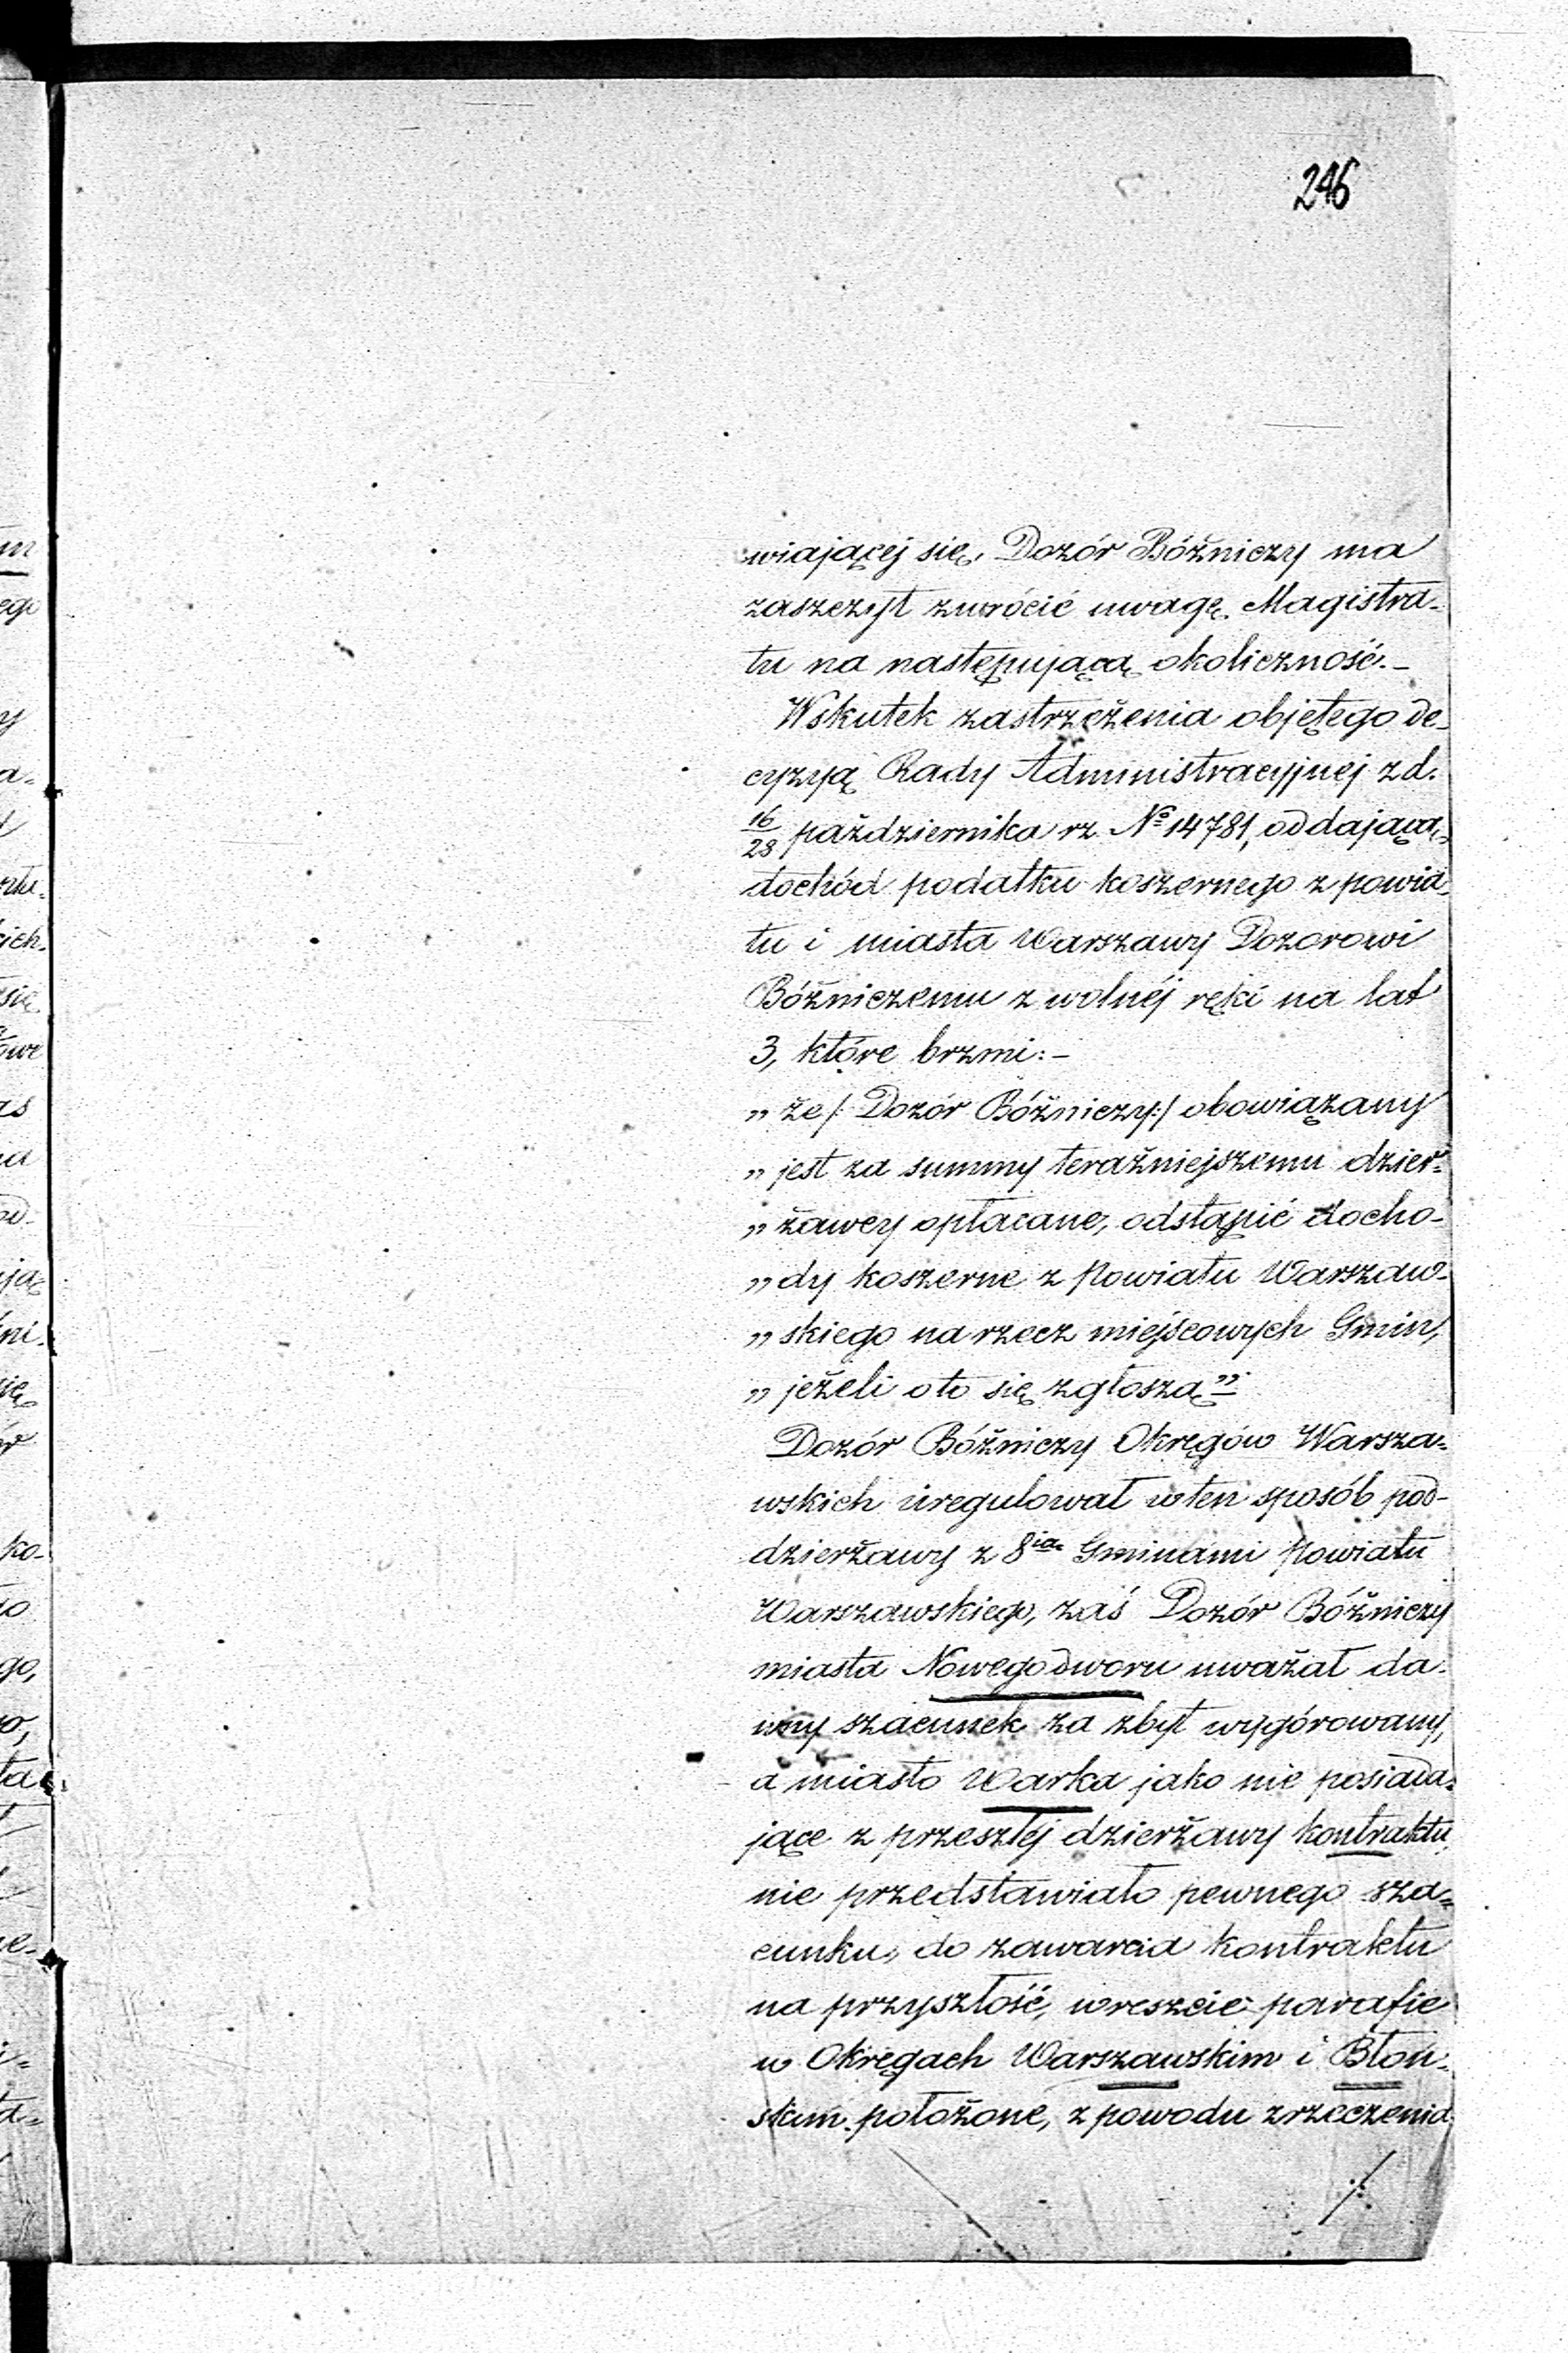 246
wiającej się, Dozór Bóżniczy ma
zaszczyt zwrócić uwagę Magistra-
tu na następującą okoliczność.-
Wskutek zastrzeżenia objętego de-
cyzyą Rady Administracyjnej z d.
16/28 października rz. № 14781, oddającą
dochód podatku koszernego z powia-
tu i miasta Warszawy Dozorowi
Bóżniczemu z wolnéj ręki na lat
3, które brzmi:-
„ że /: Dozór Bóżniczy:/ obowiązany
„ jest za summy teraźniejszemu dzier-
„ żawcy opłacane, odstąpić docho-
„ dy koszerne z Powiatu Warszaw-
„ skiego na rzecz miejscowych Gmin,
„ jeżeli oto się zgłoszą"
Dozór Bóżniczy Okręgów Warsza-
wskich uregulował w ten sposób pod-
dzierżawy z 8ia Gminami Powiatu
Warszawskiego, zaś Dozór Bóżniczy
miasta Nowegodworu uważał da-
wny szacunek za zbyt wygórowany,
a miasto Warka jako nie posiada-
jące z przeszłéj dzierżawy kontraktu,
nie przedstawiało pewnego sza-
cunku, do zawarcia kontraktu
na przyszłość, wreszcie parafie
w Okręgach Warszawskim i Błoń-
skim położone, z powodu zrzeczenia